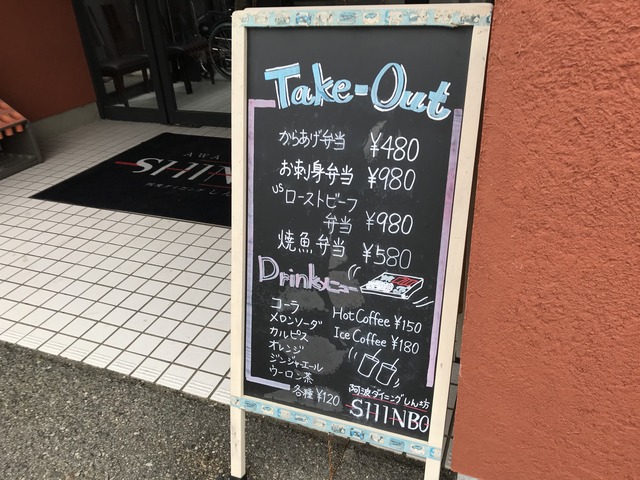 Take-Out
からあげ弁当 ¥480
お刺身弁当 ¥980
US ローストビーフ
弁当 ¥980
焼魚弁当 ¥580
Drinkメニュー
コーラ
メロンソーダ
カルピス
オレンジ
ジンジャエール
ウーロン茶
各種 ¥120
Hot Coffee ¥150
Ice Coffee ¥180
阿波ダイニングしん坊
SHINBO
AWA
SHIN